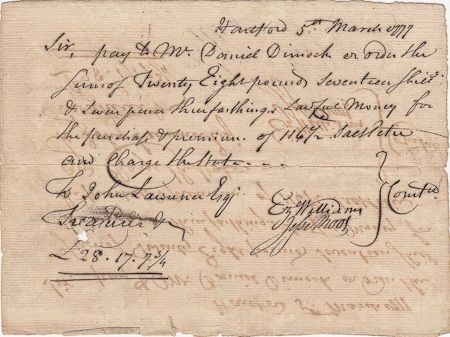 Hartford 5th March 1777
Sir, pay to Mr. Daniel Dimock or order the
Sum of Twenty Eight pounds Seventeen Shills
& Seven pence three farthings Lawful Money for
the purchase & premium of 116 1/2 Saltpeter
and Charge the State - - -
To John Lawrence Esqr
Treasurer
Ez Williams
Comtee
£28. 17. 7 3/4